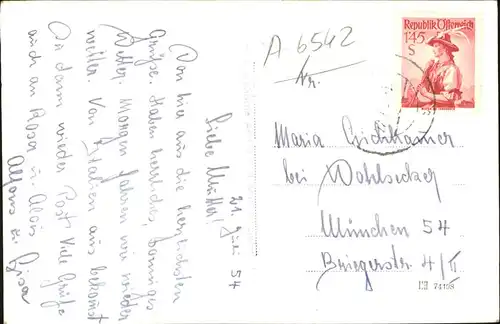 21. Juli 54
Liebe Mutter!
Von hier aus die herzlichsten
Grüße. Haben herrliches, sonniges
Wetter. Morgen fahren wir wieder
weiter. Von Italien aus bekommst
Du dann wieder Post. Viele Grüße
auch an Rosa u. Alois
Alfons u. Gisa
A 6542
Nr.
Republik Österreich
1'45
S
Maria
bei Wohlsecker
München 54
Briegerstr 4/II
74158